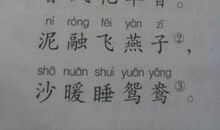 ní róng fēi yàn zǐ
泥融飞燕子②，
shā nuǎn shuì yuān yāng
沙暖睡鸳鸯③。